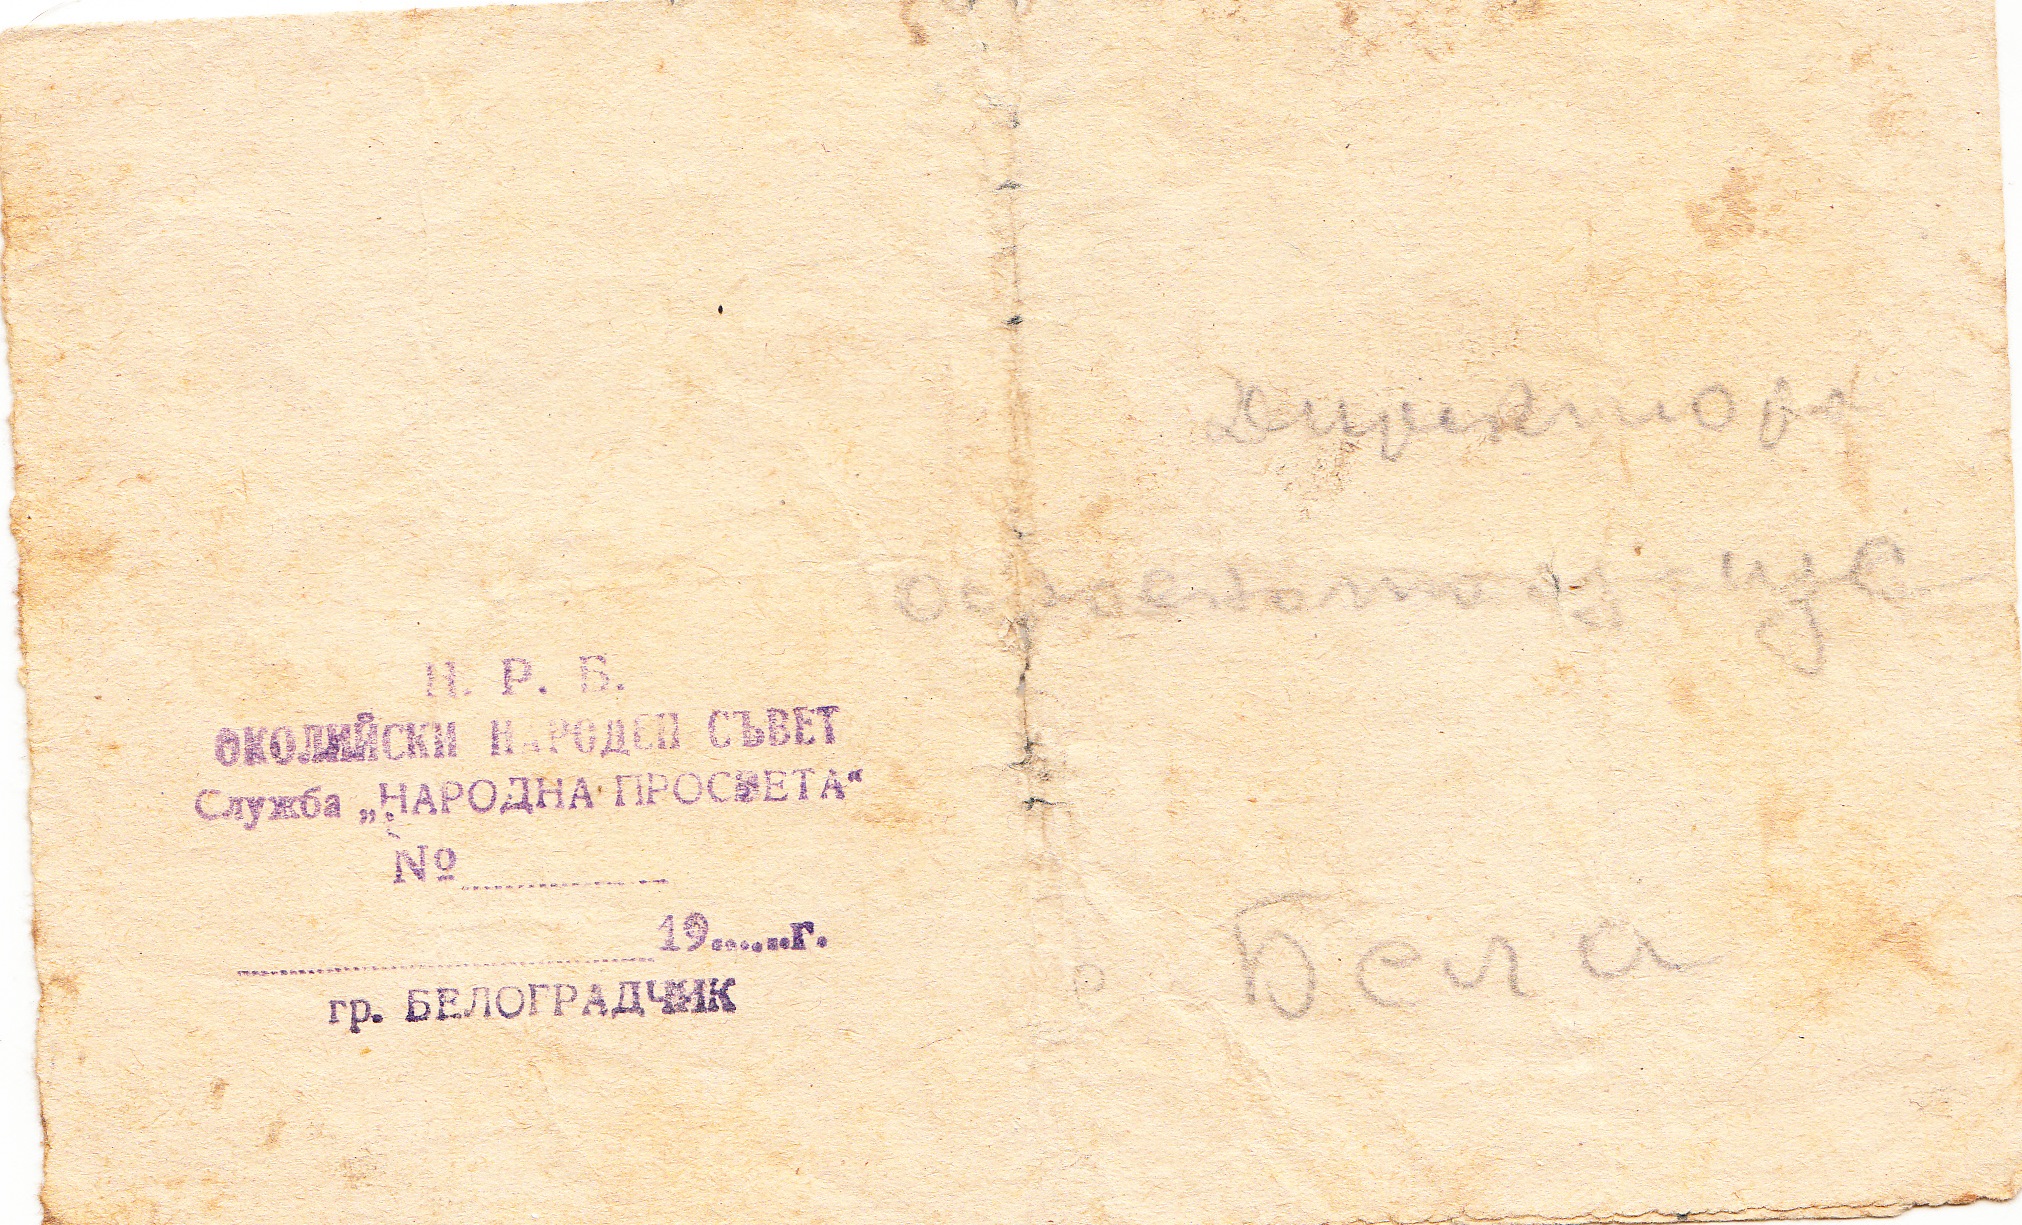 Н. Р. Б.
ОКОЛИЙСКИ НАРОДЕН СЪВЕТ
Служба „НАРОДНА ПРОСВЕТА“
№
19......г.
гр. БЕЛОГРАДЧИК
Директора
основното у-ще
с Бела